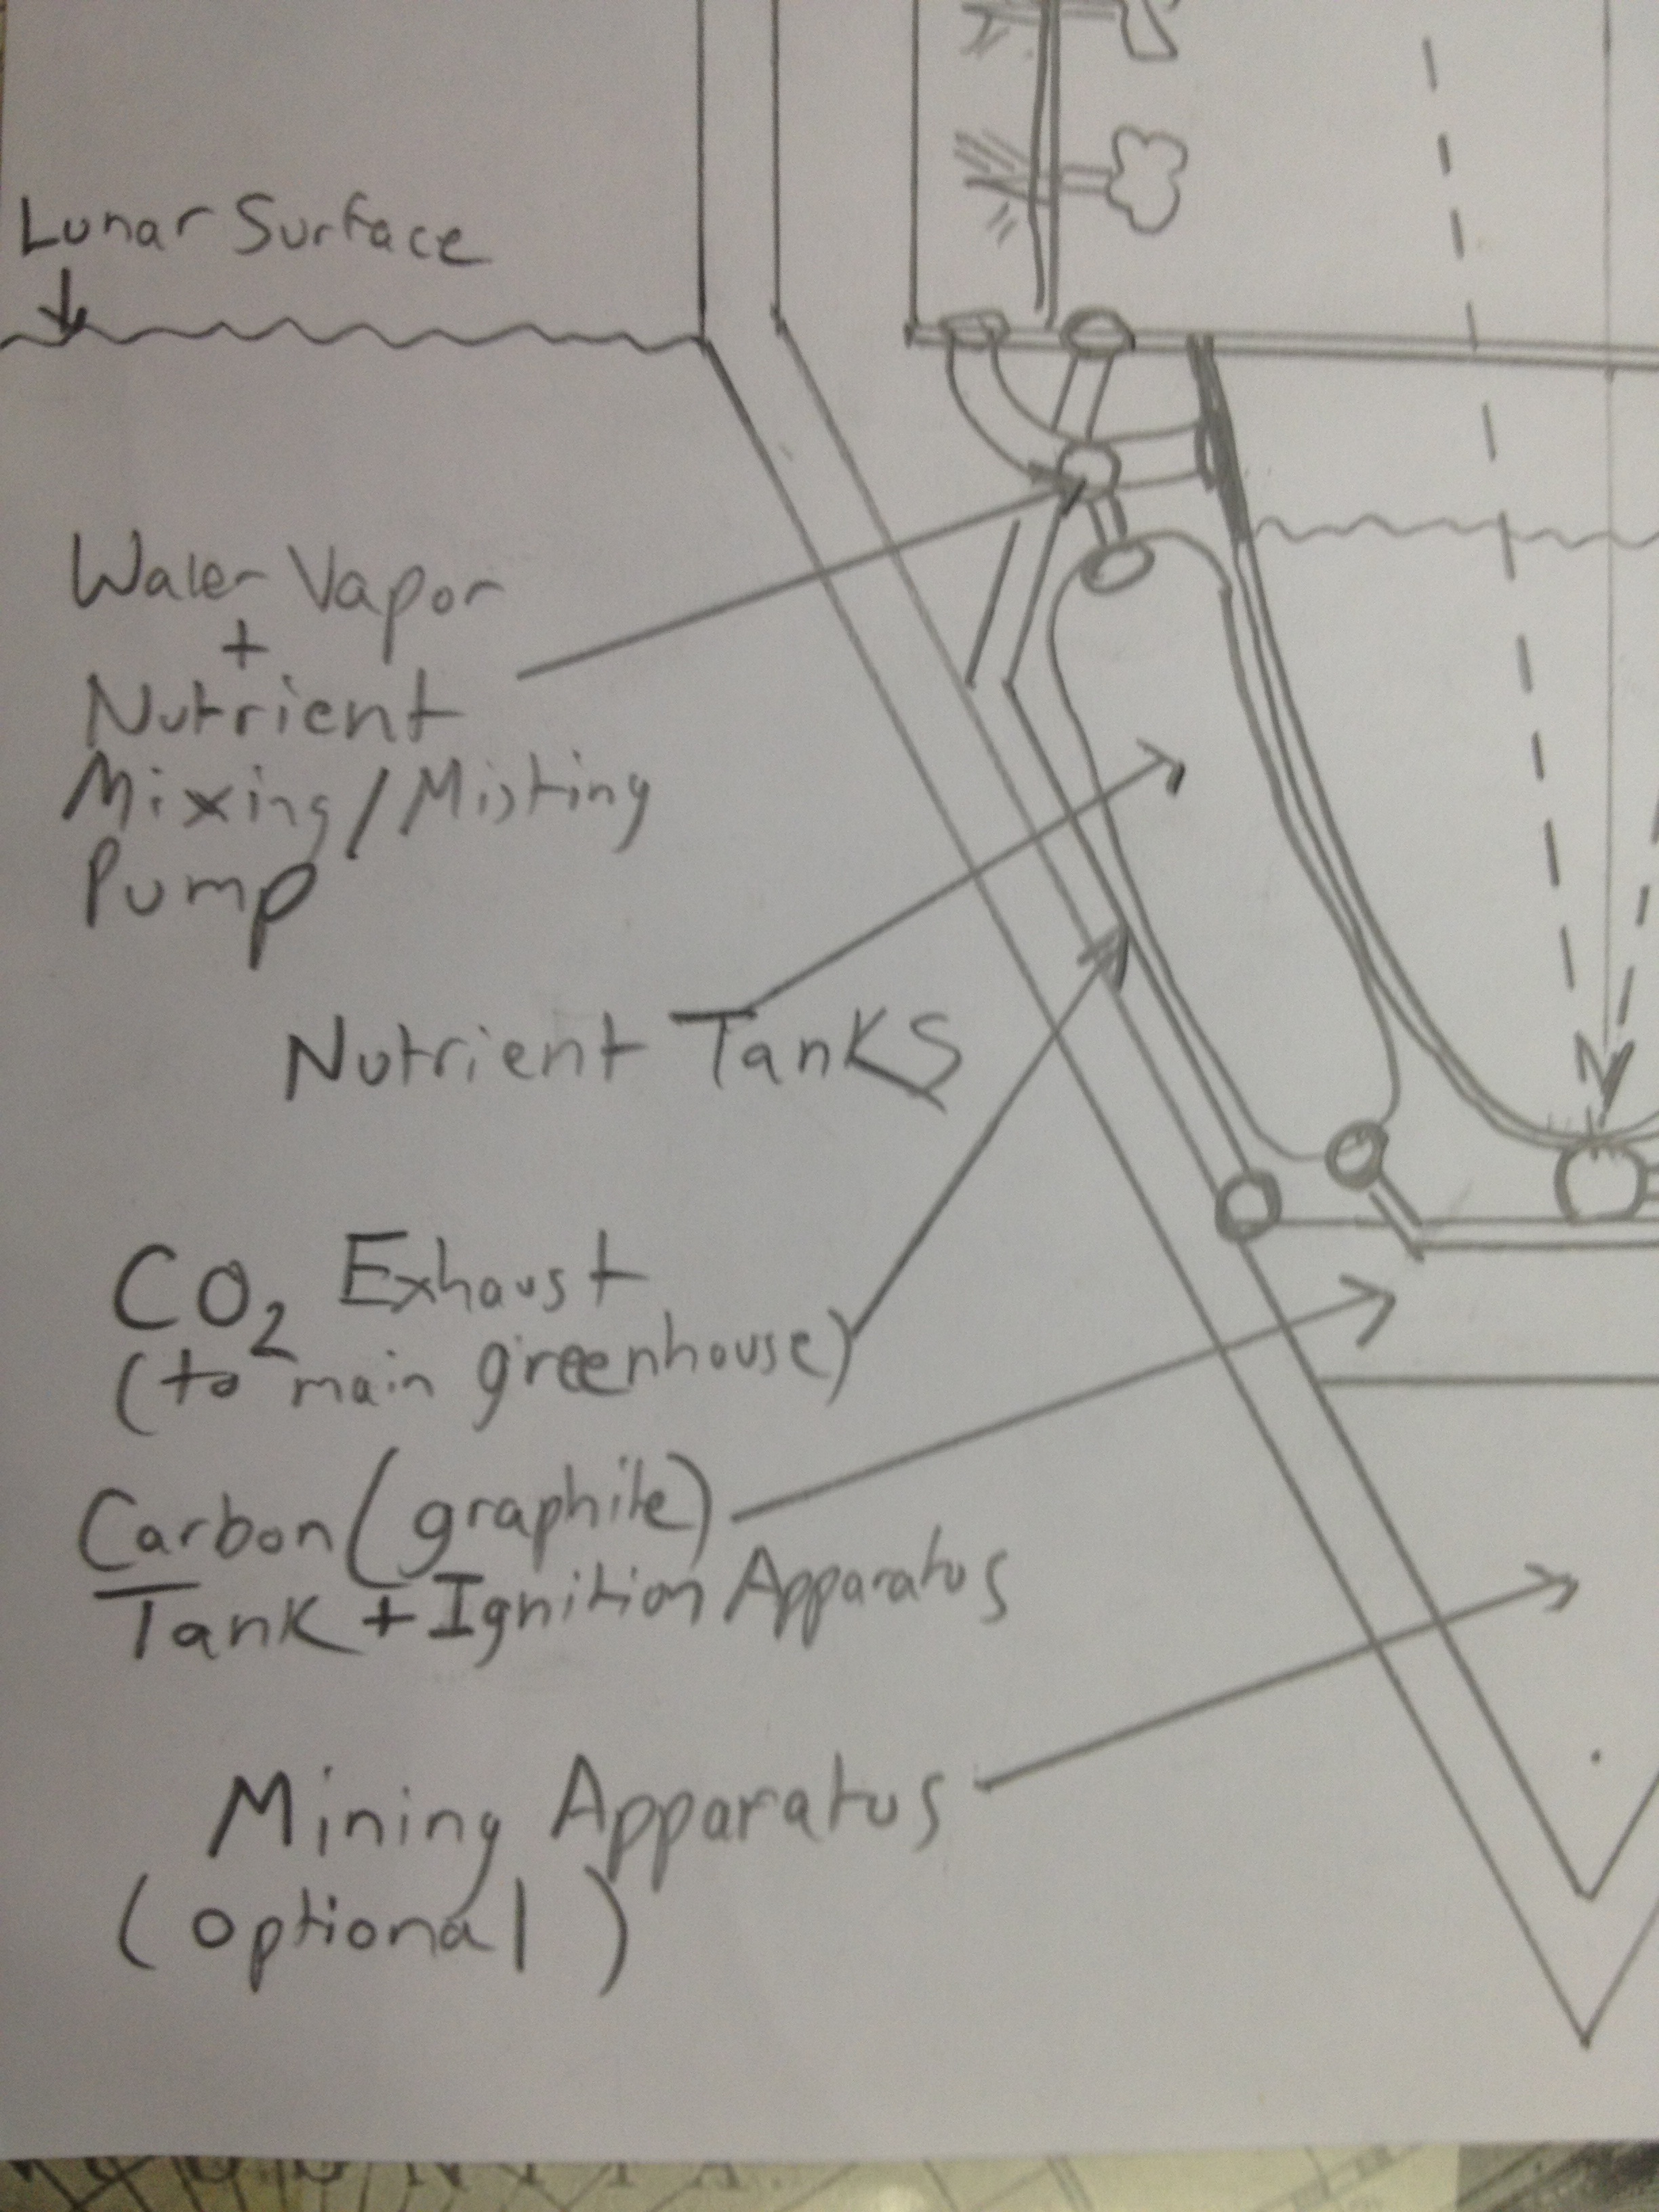 Lunar Surface
Water Vapor
+
Nutrient
Mixing/Misting
Pump
Nutrient Tanks
CO₂ Exhaust
(to main greenhouse)
Carbon (graphite)
Tank + Ignition Apparatus
Mining Apparatus
(optional)